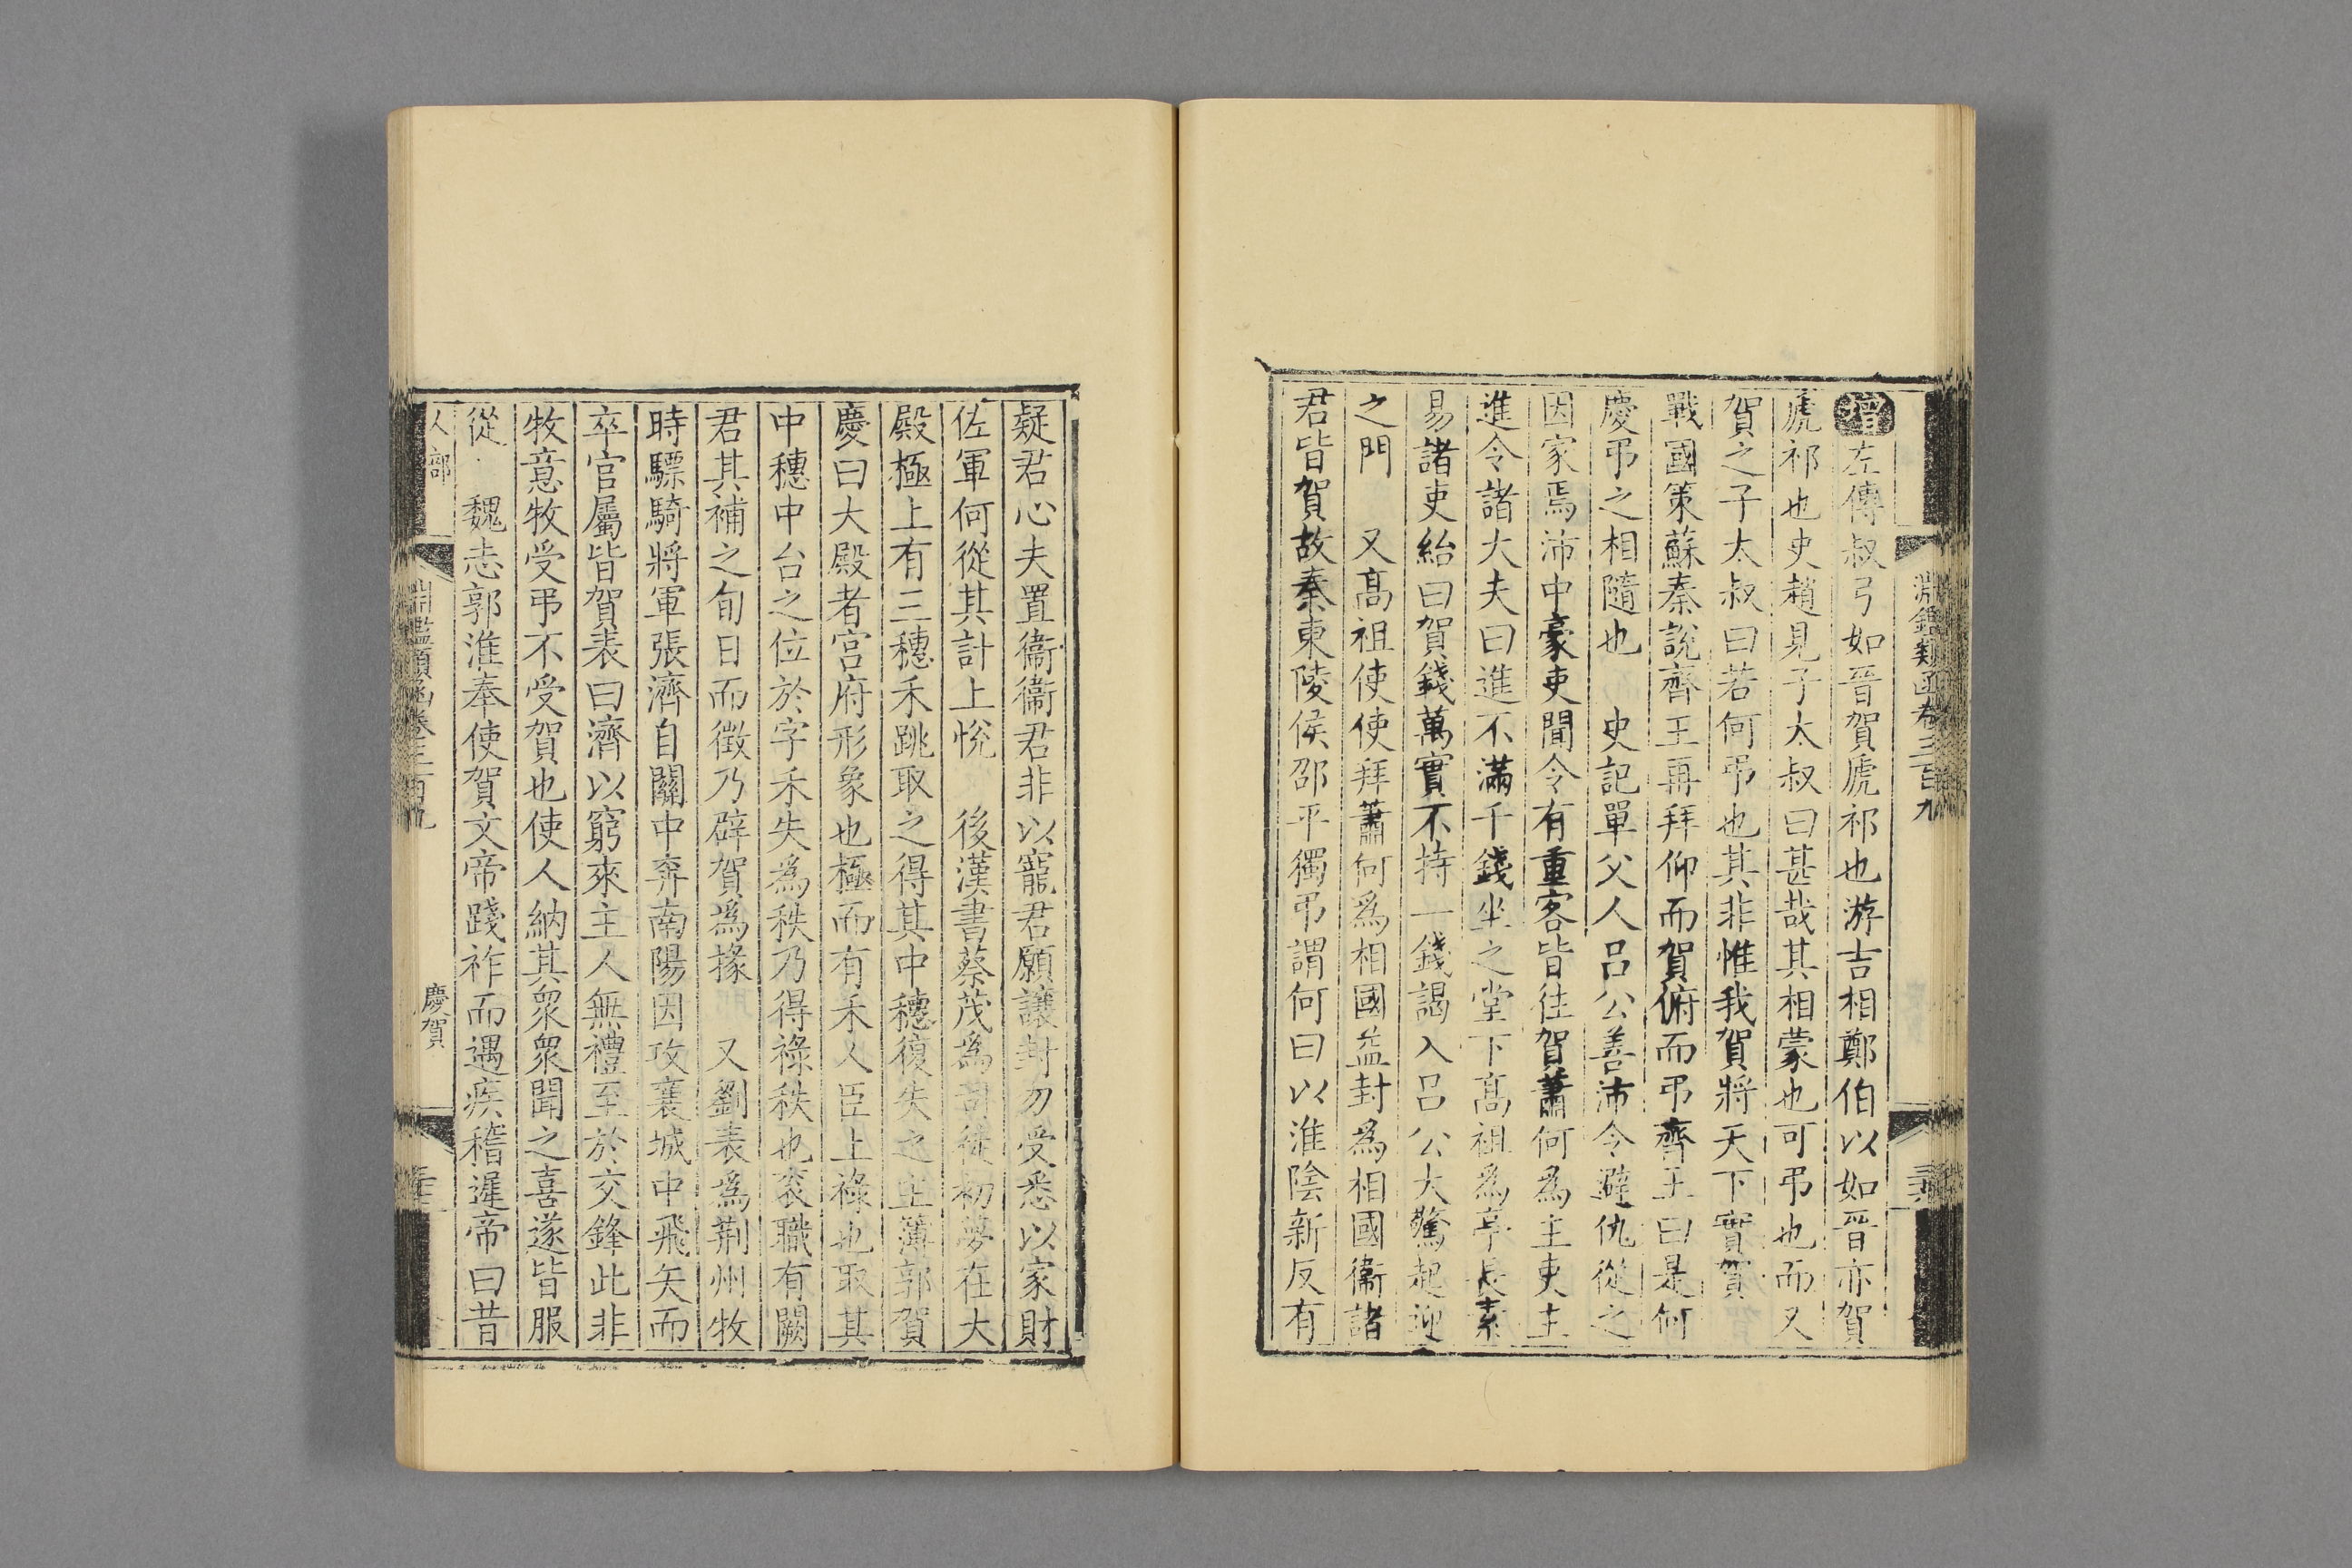 淵鑑類函卷三百九
增左傳叔弓如晉賀虒祁也游吉相鄭伯以如晉亦賀
虒祁也史趙見子太叔曰甚哉其相蒙也可弔也而又
賀之子太叔曰若何弔也其非惟我賀將天下實賀
戰國策蘇秦說齊王再拜仰而賀俯而弔齊王曰是何
慶弔之相隨也 史記單父人呂公善沛令避仇從之
因家焉沛中豪吏聞令有重客皆往賀蕭何為主吏主
進令諸大夫曰進不滿千錢坐之堂下高祖為亭長素
易諸吏紿曰賀錢萬實不持一錢謁入呂公大驚起迎
之門 又高祖使使拜蕭何為相國益封為相國衞諸
君皆賀故秦東陵侯邵平獨弔謂何曰以淮陰新反有
疑君心夫置衞衞君非以寵君願讓封勿受悉以家財
佐軍何從其計上悅 後漢書蔡茂為司徒初夢在大
殿極上有三穗禾跳取之得其中穗復失之主簿郭賀
慶曰大殿者宮府形象也極而有禾人臣上祿也取其
中穗中台之位於字禾失為秩乃得祿秩也袞職有闕
君其補之旬日而徵乃辟賀為掾 又劉表為荆州牧
時驃騎將軍張濟自關中奔南陽因攻襄城中飛矢而
卒官屬皆賀表曰濟以窮來主人無禮至於交鋒此非
牧意牧受弔不受賀也使人納其衆衆聞之喜遂皆服
從 魏志郭淮奉使賀文帝踐祚而遇疾稽遲帝曰昔
人部 淵鑑類函卷三百九 慶賀